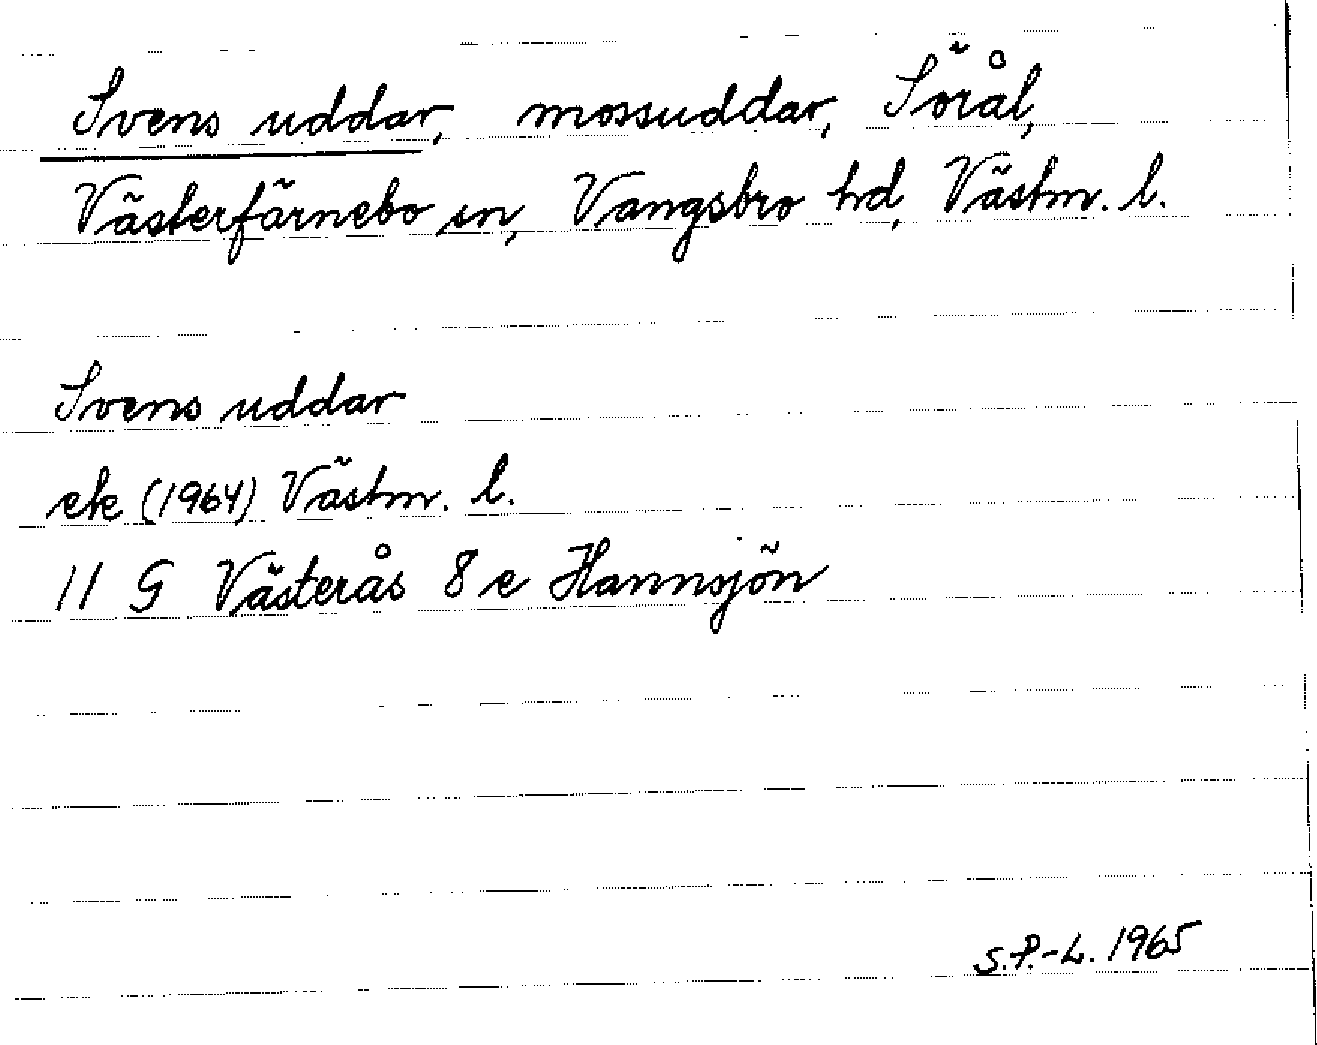 Svens uddar, mossuddar, Sörål,
Västerfärnebo sn, Vangsbro hd, Västm. l.
Svens uddar
ek (1964) Västm. l.
11 G Västerås 8 e Hannsjön
S.P.-L. 1965